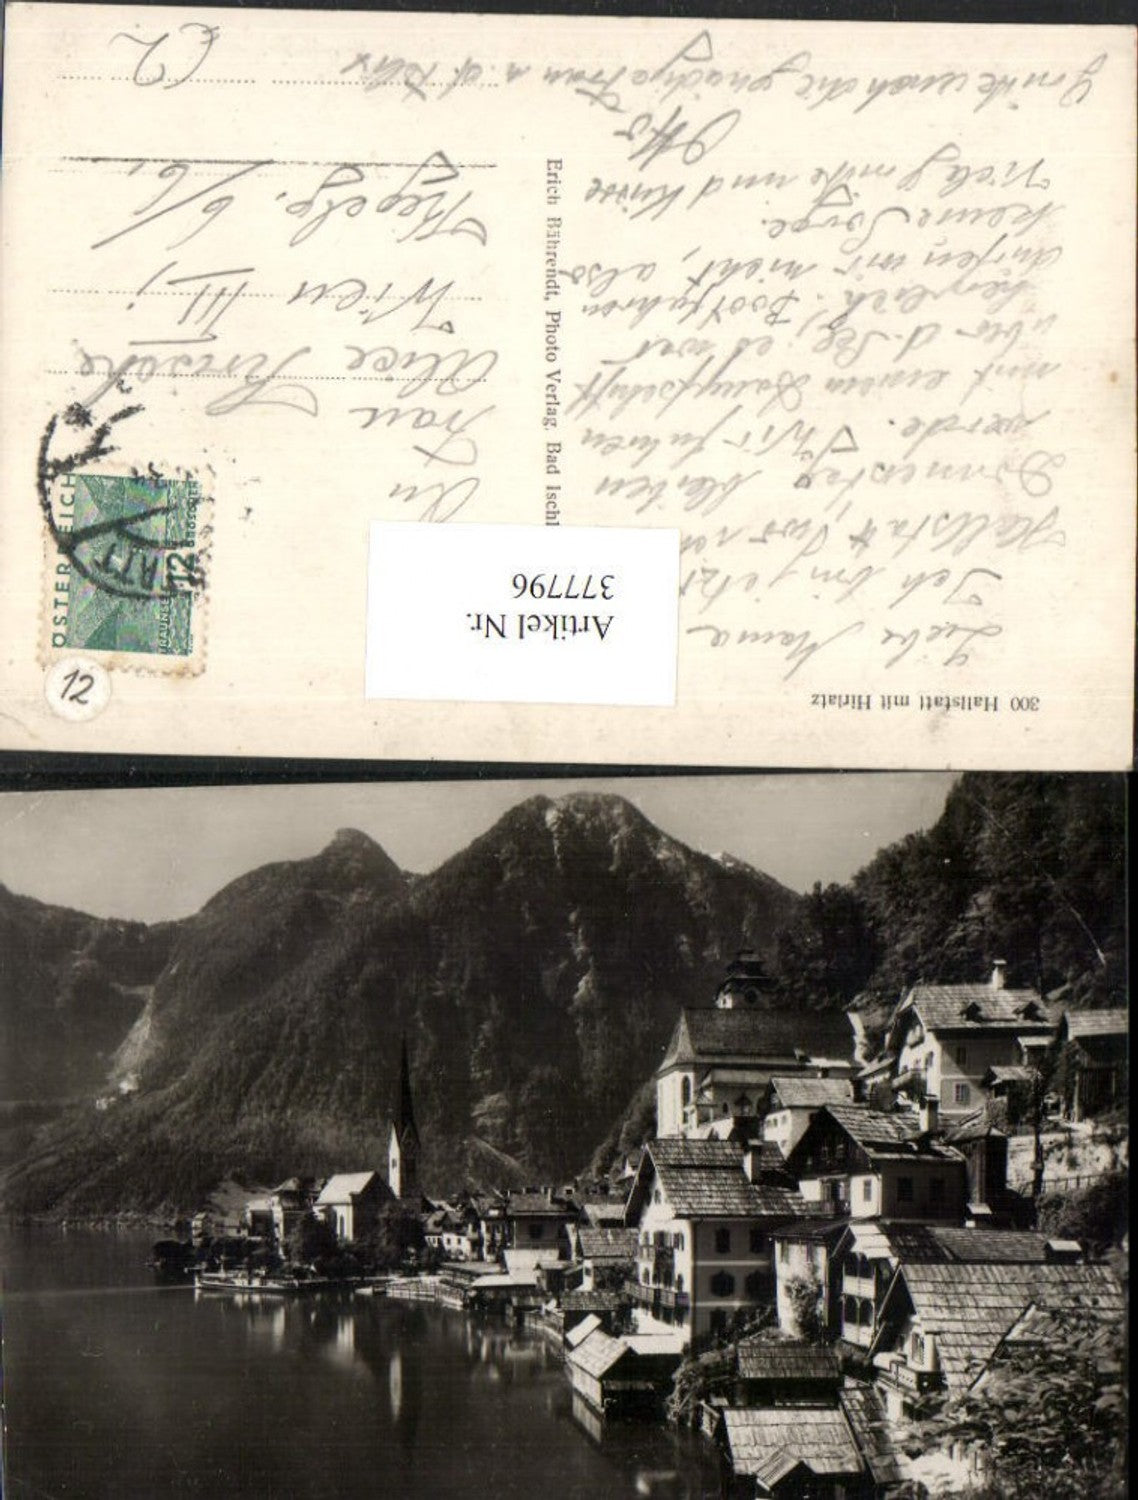 300 Hallstatt mit Hirlatz
Liebe Mama
Ich bin jetzt
Hallstatt,
Donnerstag bleiben
werde. Wir fuhren
mit einem Dampfschiff
über d. See, es war
herrlich. Bootfahren
dürfen wir nicht, also
keine Sorge.
Viele Grüße und Küsse
Otto
Grüße auch die gnädige Frau
Erich Bährendt, Photo Verlag. Bad Ischl
Artikel Nr.
377796
An
Frau
Alice
Wien III.,
6/6.
ÖSTERREICH
12
TRAUNSEE
12